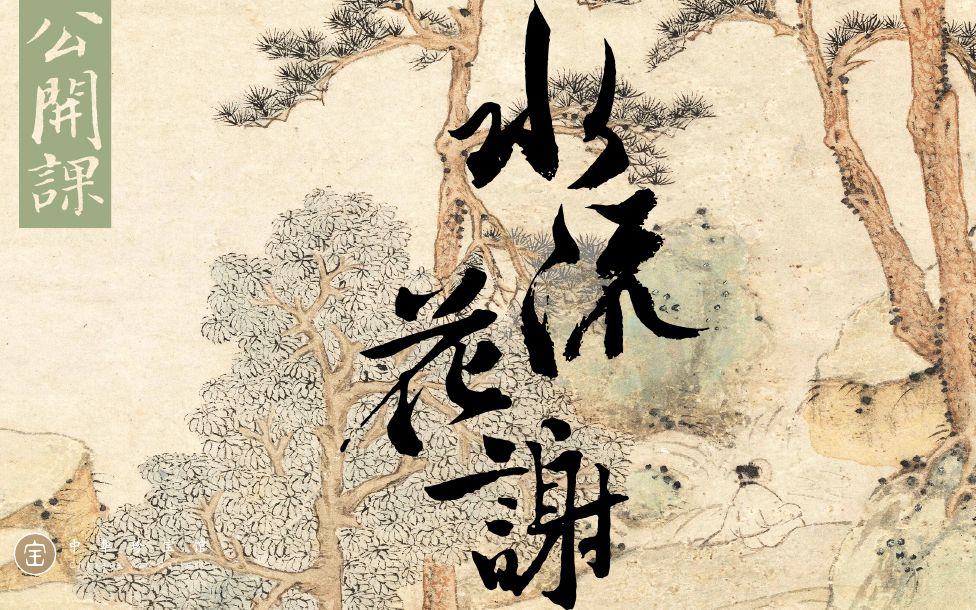 公開課
水流花謝
中華珍寶館